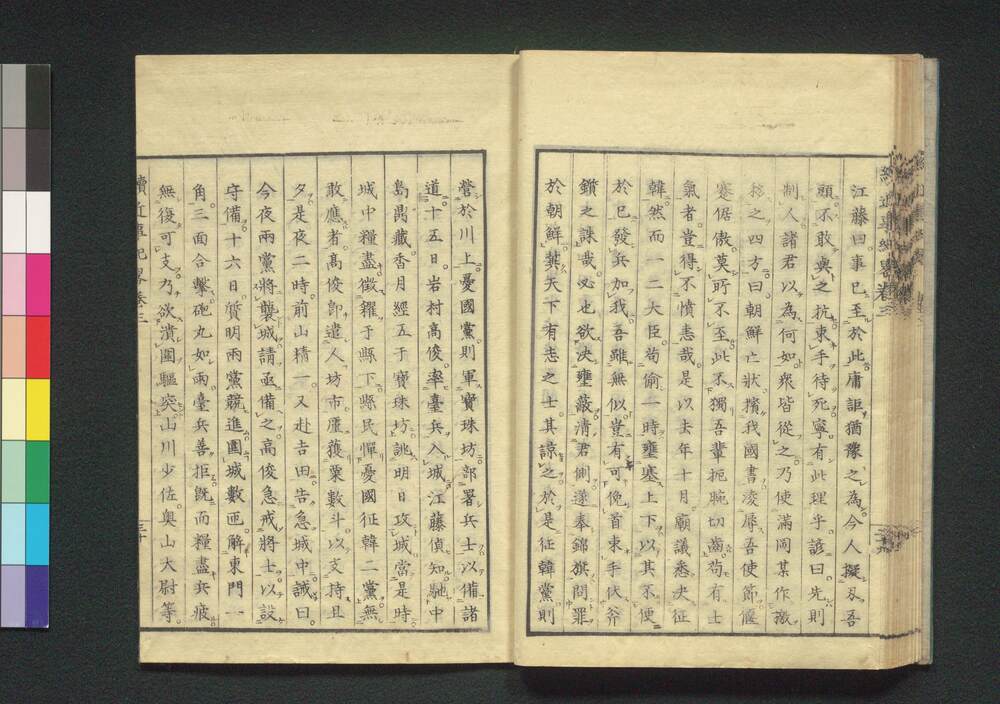 江藤曰事已至於此庸詎猶豫之為今人擬刃吾
頭不敢與之抗束手待死寧有此理乎諺曰先則
制人諸君以為何如衆皆從之乃使滿岡某作檄
移之四方曰朝鮮亡狀擯我國書凌辱吾使節偃
蹇倨傲莫所不至此不獨吾輩扼腕切齒苟有士
氣者豈得不憤恚哉是以去年十月廟議悉決征
韓然而一二大臣苟偷一時壅塞上下以其不便
於己發兵加我吾雖無似豈有可俛首束手伏斧
鑕之誅哉必也欲決壅蔽清君側遂奉錦旗問罪
於朝鮮冀天下有志之士其諒之於是征韓黨則
營於川上憂國黨則軍寶珠坊部署兵士以備諸
道十五日岩村高俊率臺兵入城江藤偵知馳中
島嵓藏香月經五于寶珠坊誂明日攻城當是時
城中糧盡徵糴于縣下縣民憚憂國征韓二黨無
敢應者高俊卽遣人坊市廛獲粟數斗以支持且
夕是夜二時前山精一又赴吉田告急城中誡曰
今夜兩黨將襲城請亟備之高俊急戒將士以設
守備十六日質明兩黨競進圍城數匝解東門一
角三面合擊砲丸如雨臺兵善拒旣而糧盡兵疲
無復可支乃欲潰圍驅突山川少佐奥山大尉等
續近事紀畧卷三
三十